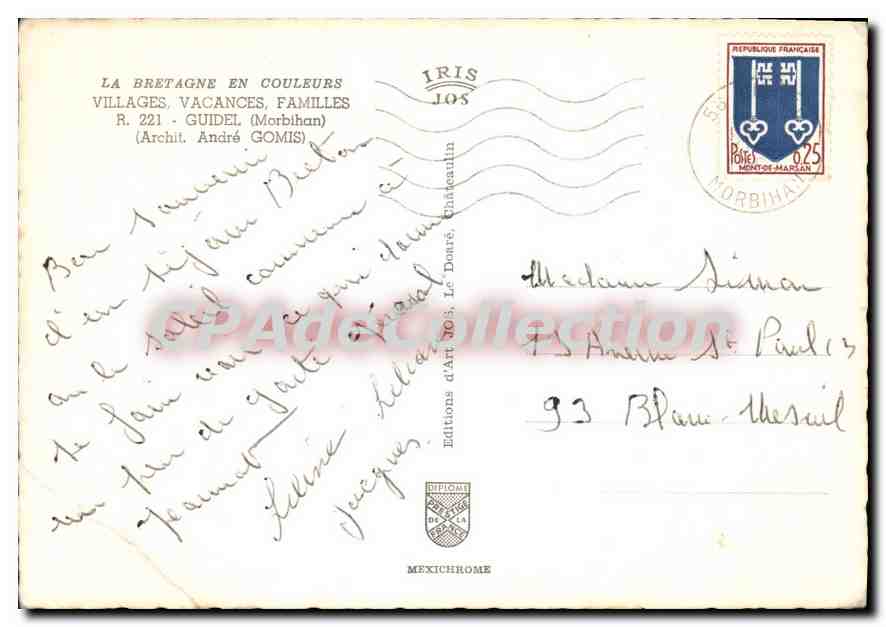 LA BRETAGNE EN COULEURS
VILLAGES, VACANCES, FAMILLES
R. 221 - GUIDEL (Morbihan)
(Archit. André GOMIS)
IRIS
JOS
REPUBLIQUE FRANÇAISE
POSTES 0,25
MONT-DE-MARSAN
56
MORBIHAN
Bon souvenir
d'un séjour Breton
ou le soleil commence à
se faire voir ce qui donne
un peu de gaité général
Jeannot Liliane
Jacques.
Editions d'Art JOS, Le Doaré, Châteaulin
CPAdeCollection
Madame Simon
73 Avenue St Paul
93 Blanc-Mesnil
DIPLOME
PRESTIGE
DE LA
FRANCE
MEXICHROME